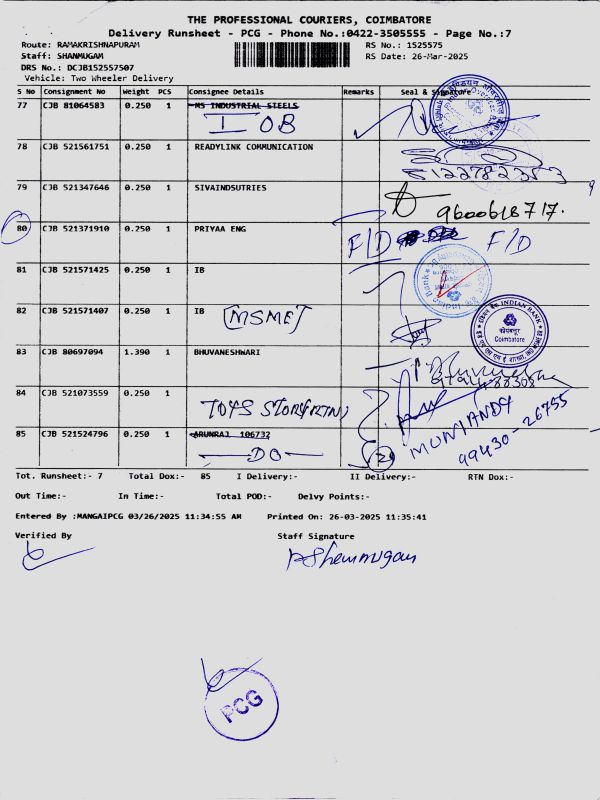 THE PROFESSIONAL COURIERS, COIMBATORE
Delivery Runsheet - PCG - Phone No.:0422-3505555 - Page No.:7
Route: RAMAKRISHNAPURAM
RS No.: 1525575
Staff: SHANMUGAM
RS Date: 26-Mar-2025
DRS No.: DCJB152557507
Vehicle: Two Wheeler Delivery
S No Consignment No Weight PCS Consignee Details Remarks Seal & Signature
77 CJB 81064583 0.250 1 MS INDUSTRIAL STEELS
IOB
78 CJB 521561751 0.250 1 READYLINK COMMUNICATION
79 CJB 521347646 0.250 1 SIVAINDSUTRIES
9600618717.
80 CJB 521371910 0.250 1 PRIYAA ENG
F/D F/D
81 CJB 521571425 0.250 1 IB
82 CJB 521571407 0.250 1 IB
MSMET
INDIAN BANK
Coimbatore
83 CJB 80697094 1.390 1 BHUVANESHWARI
84 CJB 521073559 0.250 1
TOYS
MUNIANDY
99430-26755
85 CJB 521524796 0.250 1 ARUNRAJ 106732
DO
Tot. Runsheet:- 7 Total Dox:- 85 I Delivery:- II Delivery:- RTN Dox:-
Out Time:- In Time:- Total POD:- Delvy Points:-
Entered By :MANGAIPCG 03/26/2025 11:34:55 AM Printed On: 26-03-2025 11:35:41
Verified By Staff Signature
PCG